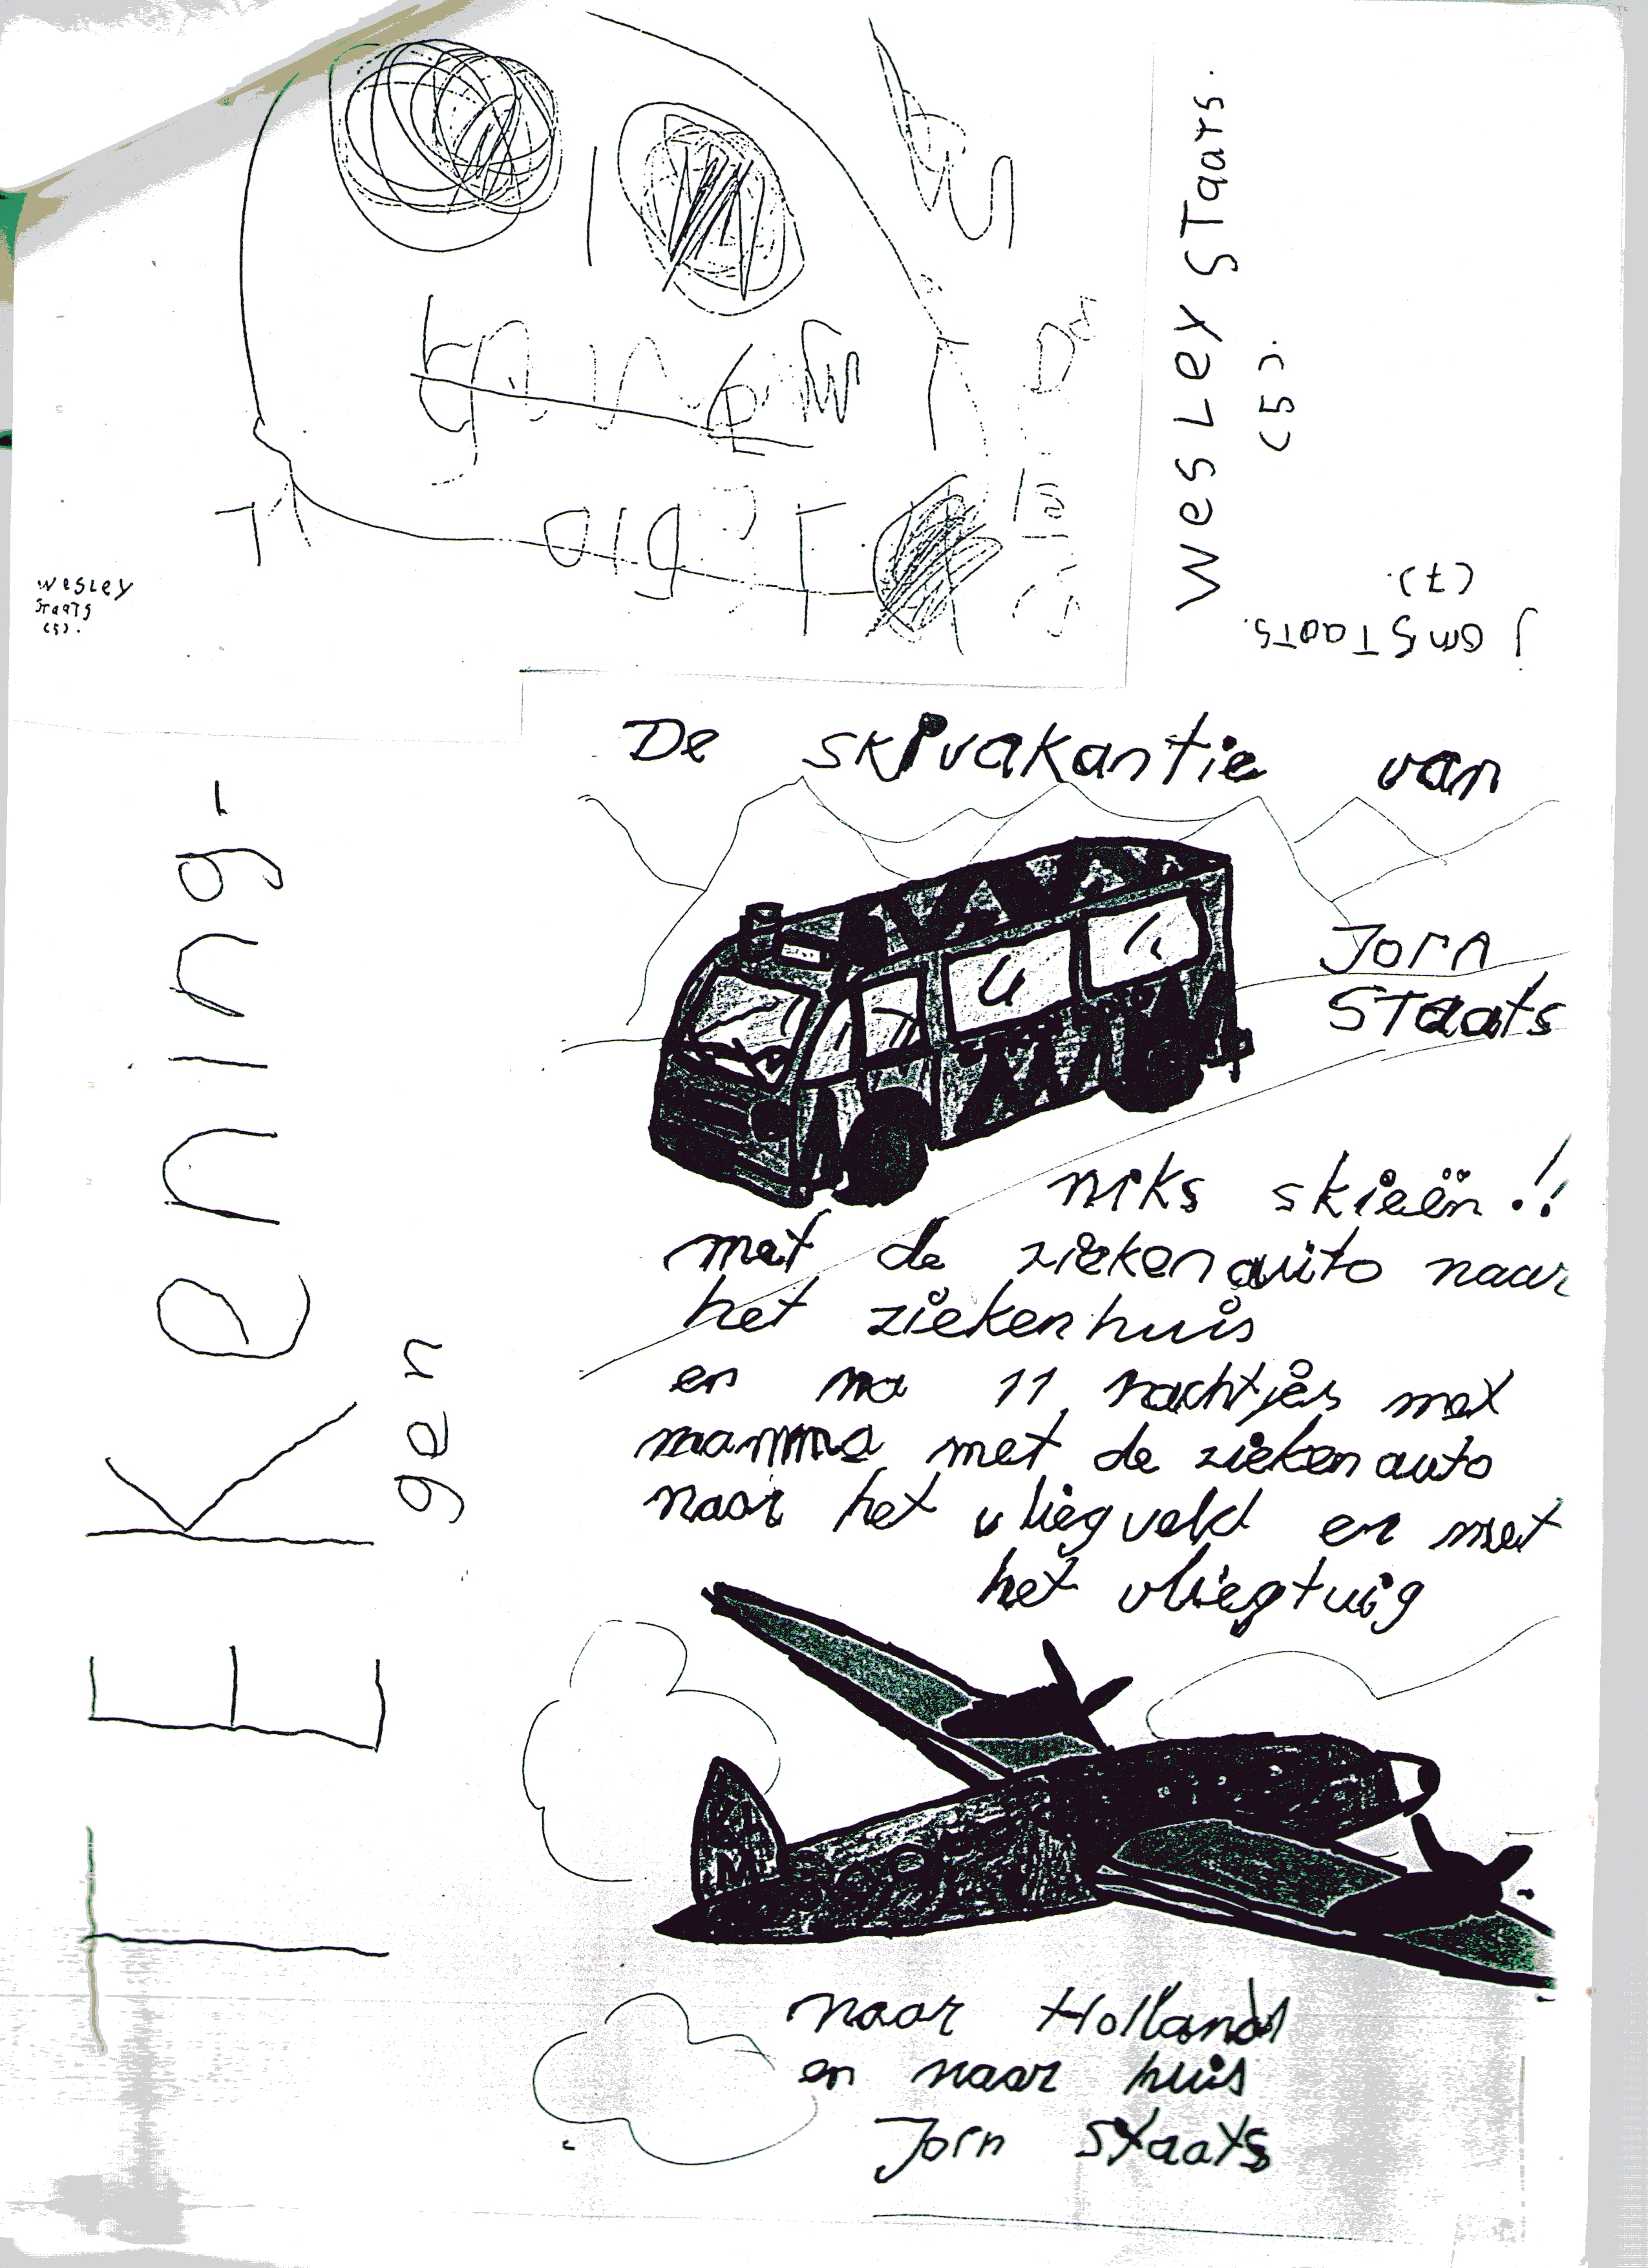 WesLey STaars.
(5).
j onSTaats.
(7)
wesLey
STaaTs
(5).
TEKening-
gen
De skivakantie van
Jorn
STaats
niks skieën!!
met de ziekenauto naar
het ziekenhuis
en na 11 nachtjes met
mamma met de ziekenauto
naar het vliegveld en met
het vliegtuig
naar Holland
en naar huis
Jorn Staats